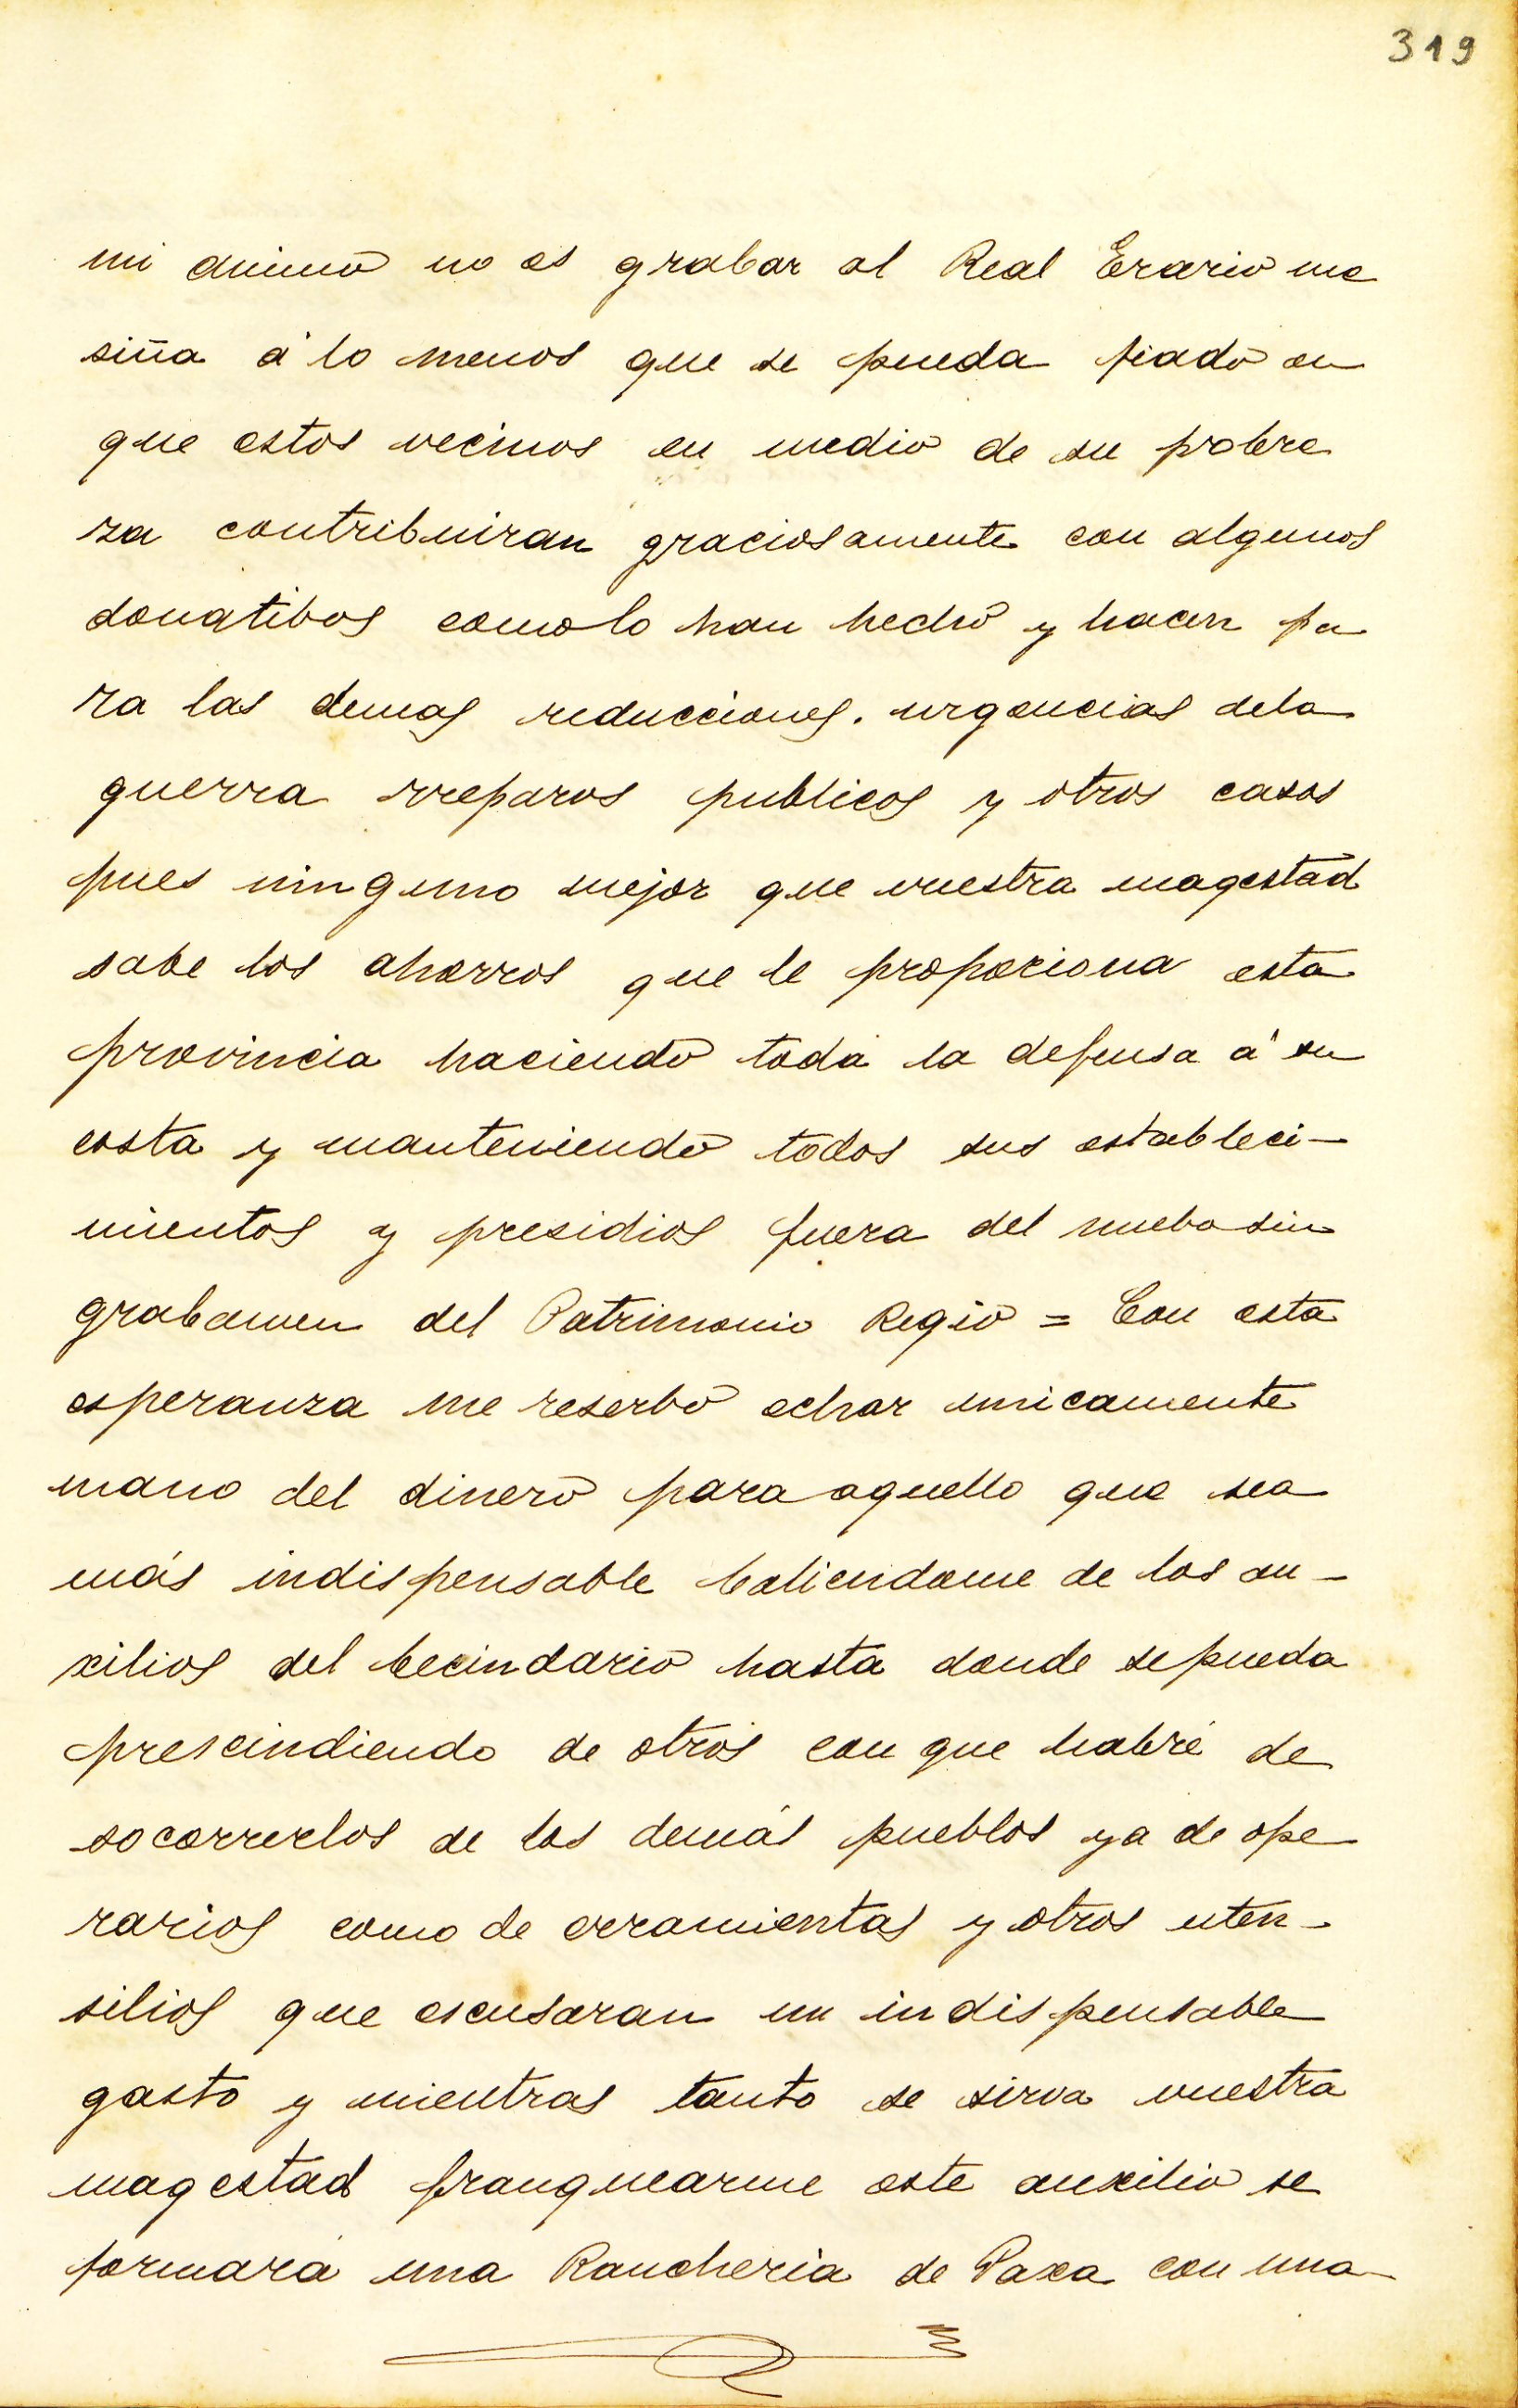 319
mi animo no es grabar al Real Erario me
siña á lo menos que se pueda fiado en
que estos vecinos en medio de su pobre
za contribuiran graciosamente con algunos
donatibos como lo han hecho y hacen pa
ra las demas reducciones. urgencias dela
guerra rreparos publicos y otros casos
pues ninguno mejor que vuestra magestad
sabe los ahorros que le proporciona esta
provincia haciendo toda la defensa á su
costa y manteniendo todos sus estableci-
mientos y presidios fuera del nuebo sin
grabamen del Patrimonio Regio = Con esta
esperanza me reserbo echar unicamente
mano del dinero para aquello que sea
más indispensable baliendome de los au-
xilios del becindario hasta donde se pueda
prescindiendo de otros con que habré de
socorrerlos de los demás pueblos ya de ope
rarios como de erramientas y otros uten-
silios que escusaran un indispensable
gasto y mientras tanto se sirva vuestra
magestad franquearme este auxilio se
formará una Rancheria de Paxa con una